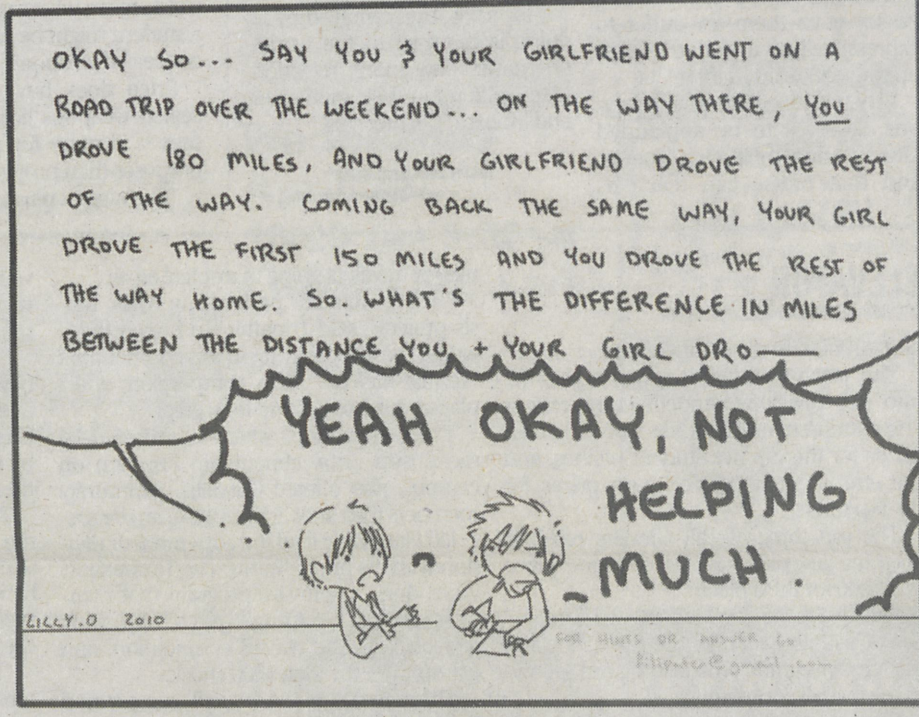 OKAY SO... SAY YOU & YOUR GIRLFRIEND WENT ON A
ROAD TRIP OVER THE WEEKEND... ON THE WAY THERE, YOU
DROVE 180 MILES, AND YOUR GIRLFRIEND DROVE THE REST
OF THE WAY. COMING BACK THE SAME WAY, YOUR GIRL
DROVE THE FIRST 150 MILES AND YOU DROVE THE REST OF
THE WAY HOME. SO. WHAT'S THE DIFFERENCE IN MILES
BETWEEN THE DISTANCE YOU + YOUR GIRL DRO—
YEAH OKAY, NOT
HELPING
MUCH.
LILLY.O 2010
FOR HINTS OR ANSWER GO:
@gmail.com